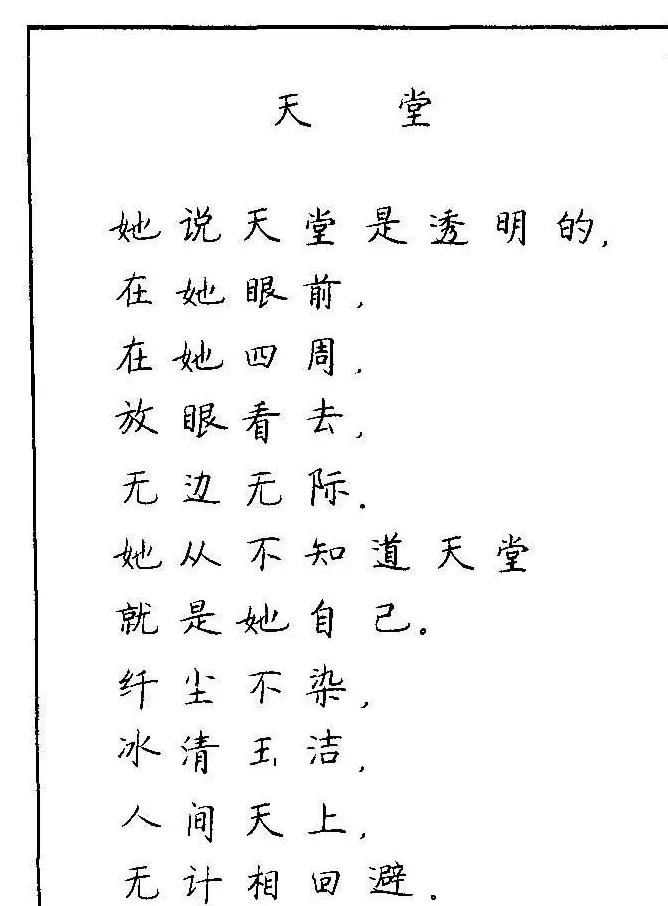 天 堂
她说天堂是透明的,
在她眼前,
在她四周,
放眼看去,
无边无际.
她从不知道天堂
就是她自己。
纤尘不染,
冰清玉洁,
人间天上,
无计相回避.